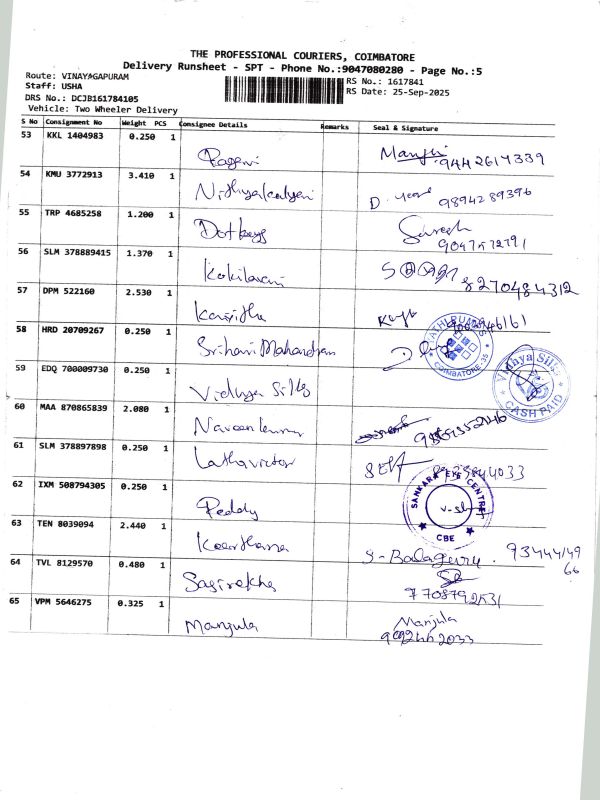 THE PROFESSIONAL COURIERS, COIMBATORE
Delivery Runsheet - SPT - Phone No.:9047080280 - Page No.:5
Route: VINAYAGAPURAM
RS No.: 1617841
Staff: USHA
RS Date: 25-Sep-2025
DRS No.: DCJB161784105
Vehicle: Two Wheeler Delivery
S No Consignment No Weight PCS Consignee Details Remarks Seal & Signature
53 KKL 1404983 0.250 1
Ragavi Manju 9442617339
54 KMU 3772913 3.410 1
Nithyakalyani D. 9894289396
55 TRP 4685258 1.200 1
Dotkeys Suresh
9047572791
56 SLM 378889415 1.370 1
Kokilavani 8270484312
57 DPM 522160 2.530 1
Kavitha
58 HRD 20709267 0.250 1
Srihari Mahandran
COIMBATORE-35
59 EDQ 700009730 0.250 1
Vidhya Silks
Vidhya Silks
CASH PAID
60 MAA 870865839 2.080 1
Naveenkumar
61 SLM 378897898 0.250 1
Lathavictor Self
62 IXM 508794305 0.250 1
Reddy
SANKARA EYE CENTRE
CBE
63 TEN 8039094 2.440 1
Keerthana S-Balaguru. 93444149
66
64 TVL 8129570 0.480 1
Sasirekha
7708792531
65 VPM 5646275 0.325 1
Manjula Manjula